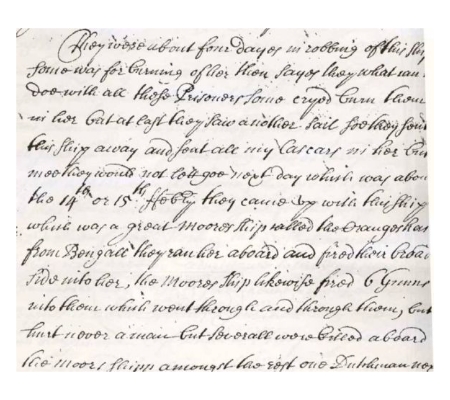 They were about four dayes in robbing of this Ship
some was for burning of her then sayes they what can
doe with all those Prisoners some cryed burn them
in her but at last they saw another sail soe they sent
this ship away and sent all my Lascars in her but
mee they would not lett goe next day which was about
the 14th or 15th ffebry they came up with this ship
which was a great moores ship called the
from Bengall they ran her aboard and fired their broad
side into her, the moores ship likewise fired 6 Gunns
into them which went through and through them, but
hurt never a man but severall were killed aboard
the moors shipp amongst the rest one Dutchman